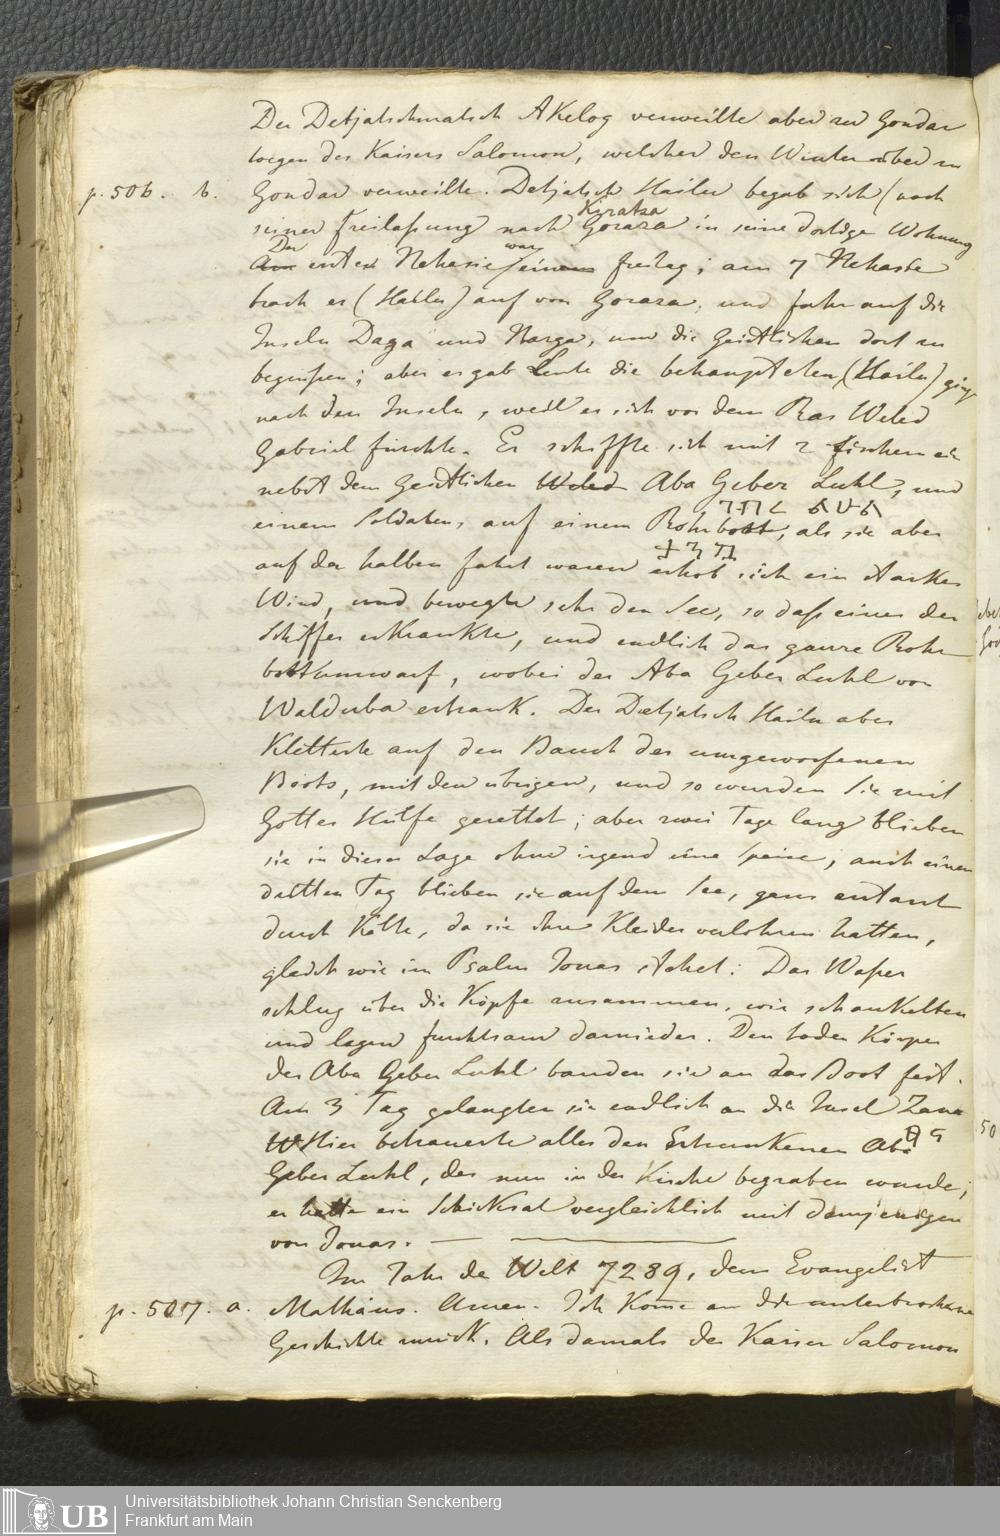 Der Detjatschmatsch AKelog verweilte aber zu Gondar
wegen des Kaisers Salomon, welcher den Winter über zu
p. 506. b. Gondar verweilte. Detjatsch Hailu begab sich (nach
seiner Freilaßung nach Kiratza Goraza in seine dortige Wohnung
Am Der erste Nehasie war einem Freitag; am 7 Nehasse
brach er (Hailu) auf von Goraza, und fuhr auf die
Inseln Daga und Narga, um die Geistlichen dort zu
begrußen; aber es gab Leute die behaupteten (Hailu) ging
nach den Inseln, weil er sich vor dem Ras Weled
Gabriel furchte. Er schiffte sich mit 2 Fischern ein
nebst dem Geistlichen Weled Aba Geber Leul, und
ገብር ልዑል
einem Soldaten, auf einem Rohrbott, als sie aber
ታንኳ
auf der halben Fahrt waren erhob sich ein starker
Wind, und bewegte sehr den See, so daß einer der
Schiffer erkrankte, und endlich das ganze Rohr
bott umwarf, wobei der Aba Geber Leul von
Walduba ertrank. Der Detjatsch Hailu aber
Kletterte auf den Bauch des umgeworfenen
Boots, mit den übrigen, und so wurden sie mit
Gottes Hülfe gerettet; aber zwei Tage lang blieben
sie in dieser Lage ohne irgend eine Speise; auch einen
dritten Tag blieben sie auf dem See, ganz erstarrt
durch Kälte, da sie ihre Kleider verlohren hatten,
gleich wie im Psalm Jonas stehet: Das Waßer
schlug über die Köpfe zusammen, wir schaukelten
und lagen furchtsam darnieder. Den toden Körper
des Aba Geber Leul banden sie an das Boot fest.
Am 3 Tag gelangten sie endlich an die Insel Zana
Hier betrauerte alles den Ertrunkenen Aba
Geber Leul, der nun in der Kirche begraben wurde;
er hatte ein Schicksal vergleichlich mit demjenigen
von Jonas.
Im Jahr der Welt 7289, dem Evangelist
p. 507. a. Mathäus. Amen. Ich Kome an die unterbrochene
Geschichte zurück. Als damals der Kaiser Salomon
UB
Universitätsbibliothek Johann Christian Senckenberg
Frankfurt am Main